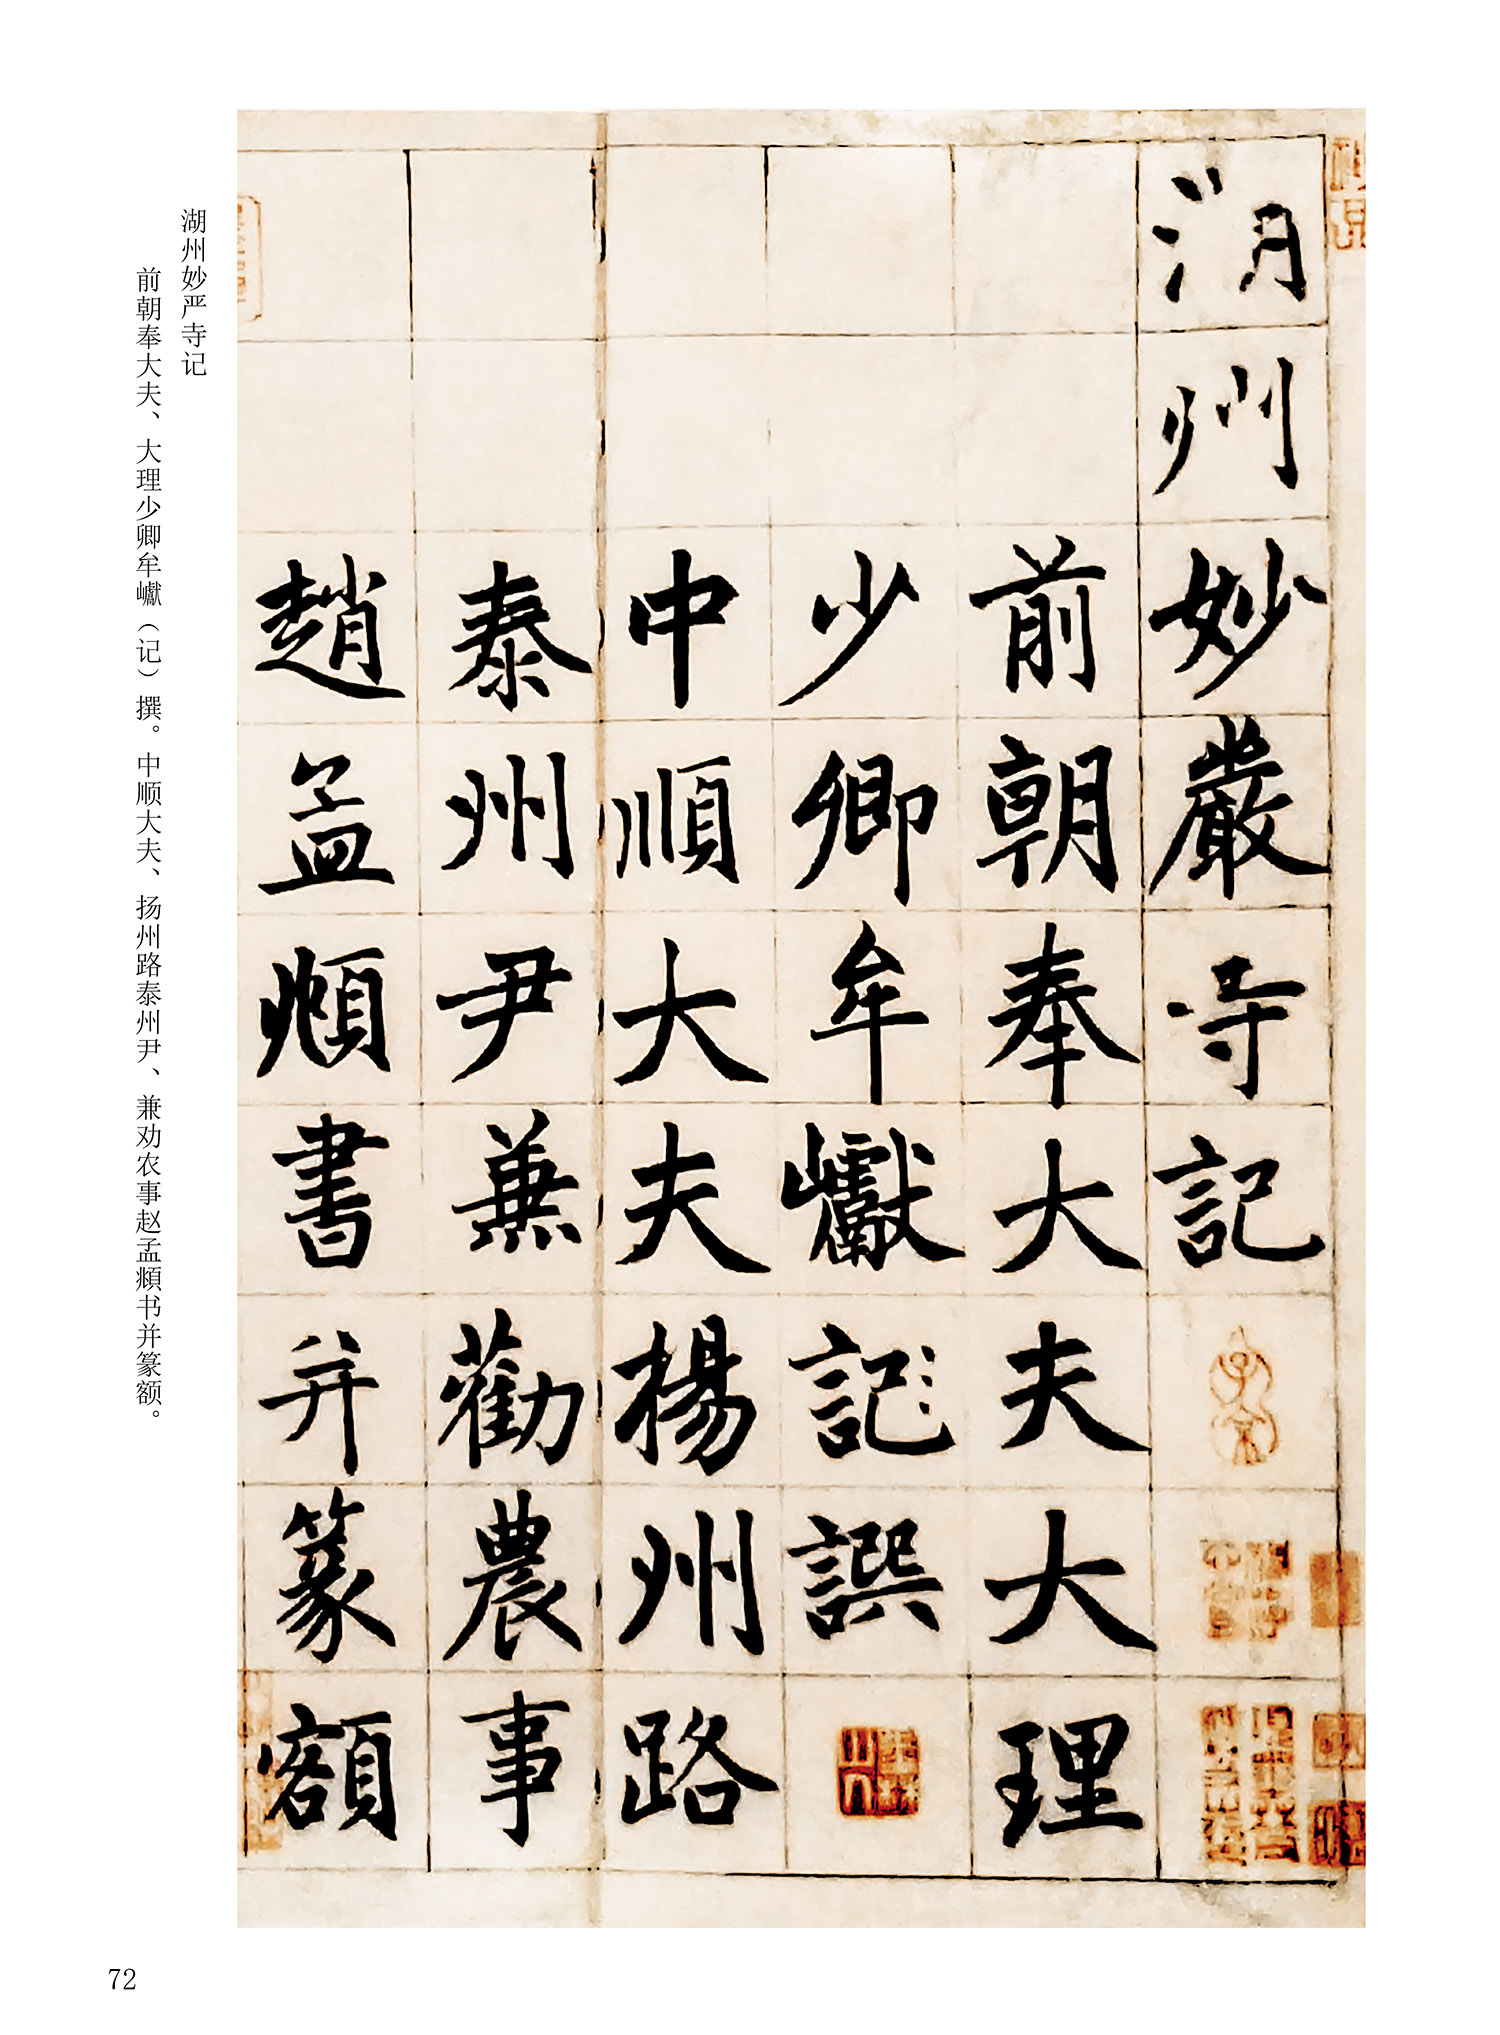 湖州妙嚴寺記
前朝奉大夫大理
少卿牟巘記譔
中順大夫楊州路
泰州尹兼勸農事
趙孟頫書并篆額
湖州妙严寺记
前朝奉大夫、大理少卿牟巘（记）撰。中顺大夫、扬州路泰州尹、兼劝农事赵孟頫书并篆额。
72